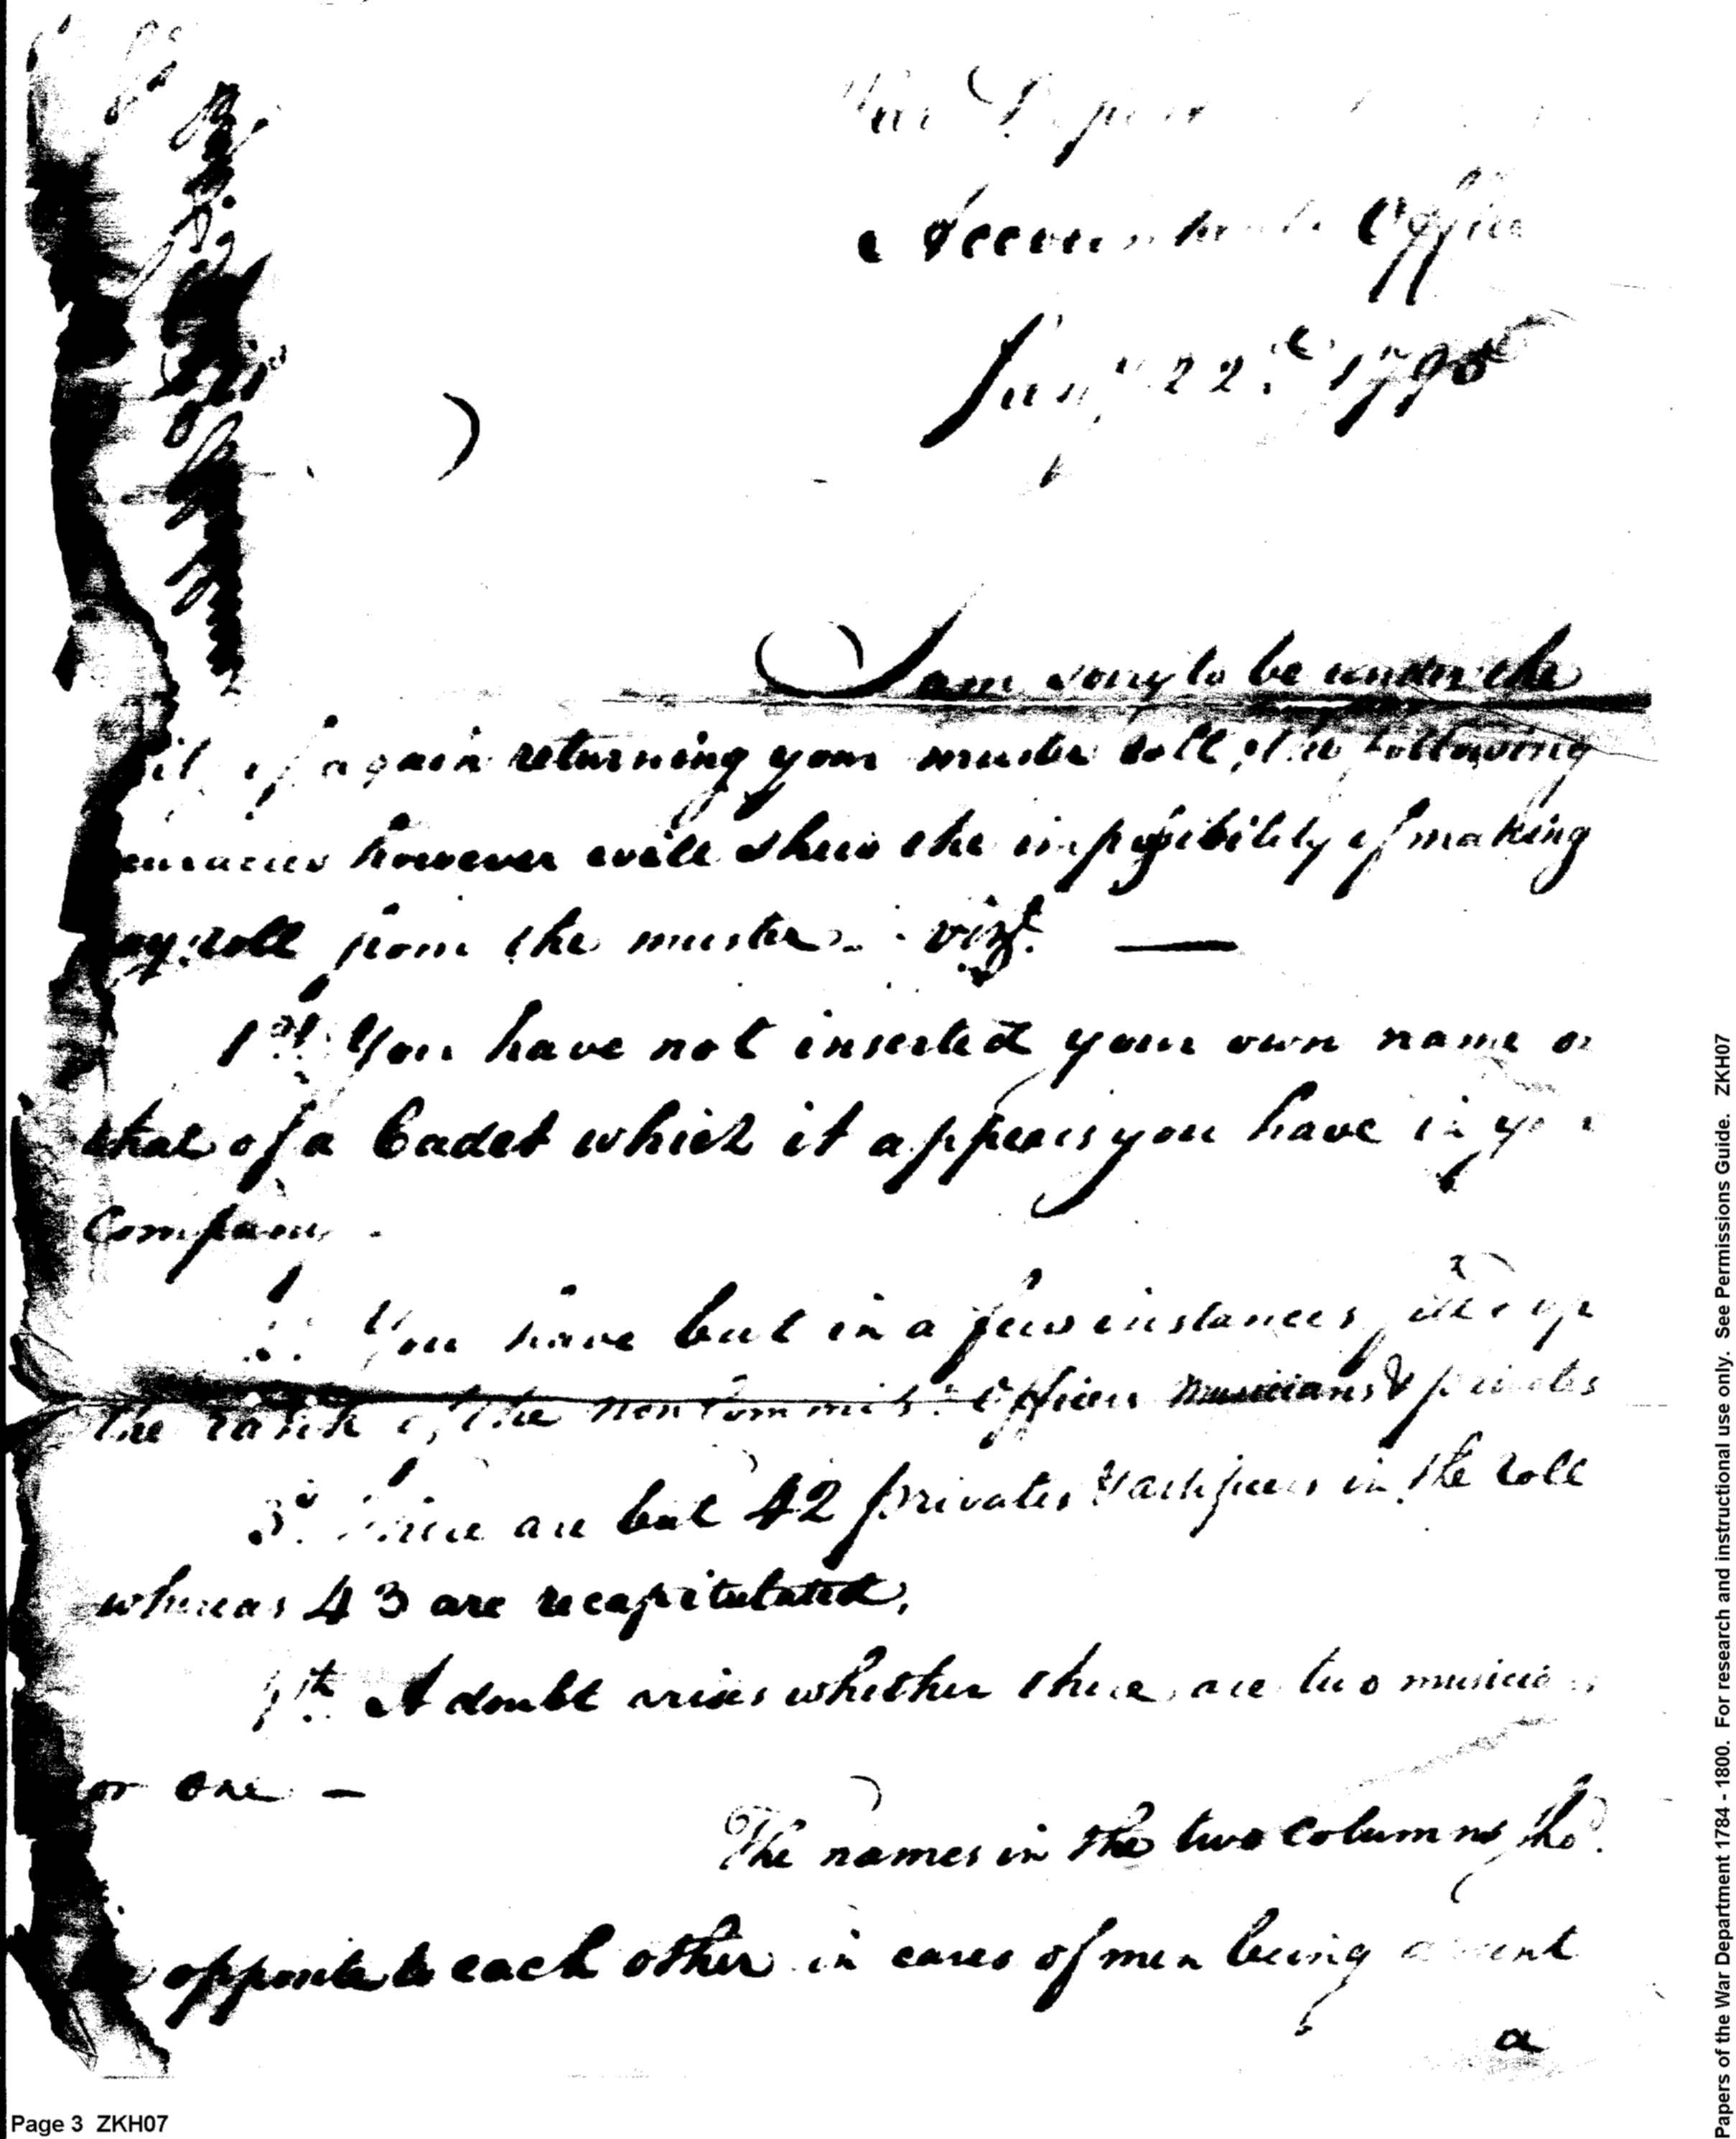 War Depar
Accountants Office
Jany 22d. 1795
I am sorry to be under the
of again returning your muster roll, the following
however will shew the impossibility of making
roll from the muster vizt. —
1st. You have not inserted your own name or
that of a Cadet which it appears you have in your
Company.
You have but in a few instances
the rank of the non Commisd. officers musicians & privates
3d. There are but 42 privates & artificers in the roll
whereas 43 are recapitulated,
4th. A doubt arises whether there are two musicians
or one —
The names in the two columns shod.
be opposite to each other in cases of men being
a
Page 3 ZKH07
Papers of the War Department 1784 - 1800. For research and instructional use only. See Permissions Guide. ZKH07